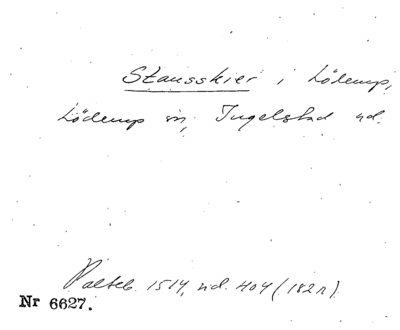 Stausskier i Löderup,
Löderup sn, Ingelstad hd.
Palteb. 1514, nd. 404 (182 r).
Nr 6627.